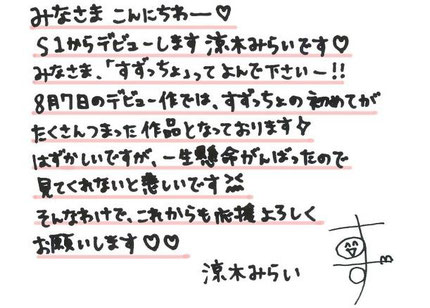 みなさま こんにちわー♡
S1からデビューします涼木みらいです♡
みなさま、「すずっちょ」ってよんで下さいー!!
8月7日のデビュー作では、すずっちょの初めてが
たくさんつまった作品となっております
はずかしいですが、一生懸命がんばったので
見てくれないと悲しいです
そんなわけで、これからも応援よろしく
お願いします♡♡
涼木みらい